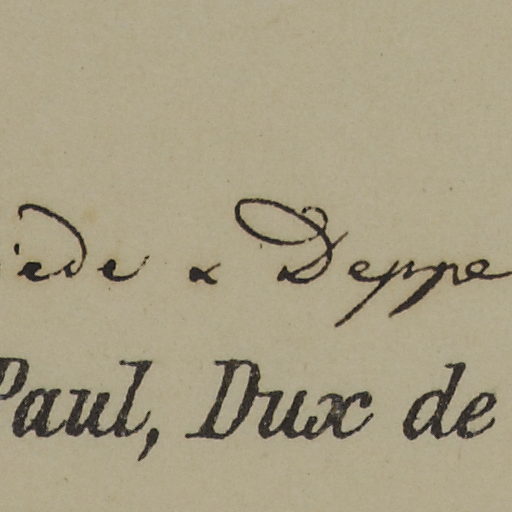 iede & Deppe
Paul, Dux de